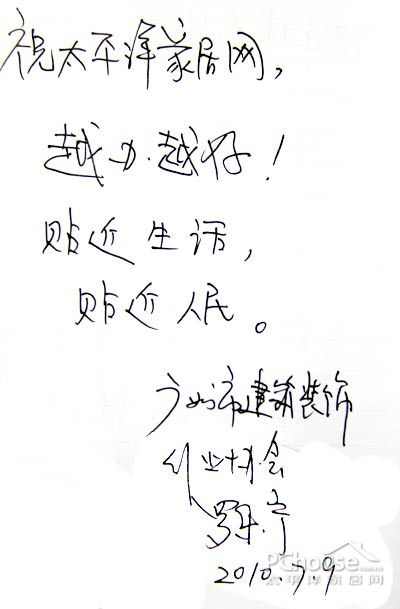 祝太平洋家居网，
越办越好！
贴近生活，
贴近人民。
广州市建筑装饰
行业协会
2010.7.9
PChouse
太平洋家居网